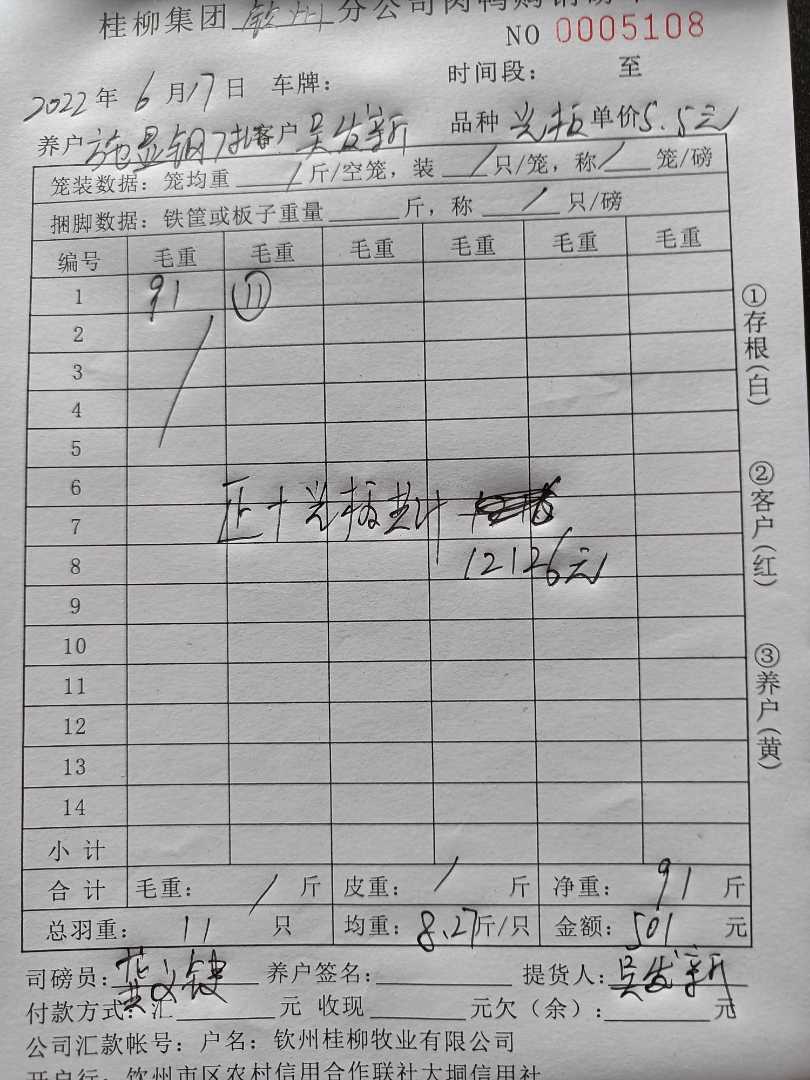 桂柳集团 钦州 分公司肉鸭购销磅单
NO 0005108
2022年 6月17日 车牌： 时间段： 至
养户 施显钢 客户 吴发新 品种 单价5.5元
笼装数据：笼均重 / 斤/空笼，装 / 只/笼，称 / 笼/磅
捆脚数据：铁筐或板子重量 斤，称 / 只/磅
编号 毛重 毛重 毛重 毛重 毛重 毛重
1 91 ⑪
2
3
4
5
6
7
8
9
10
11
12
13
14
正十 板共计
12126元
小计
合计 毛重： / 斤 皮重： / 斤 净重： 91 斤
总羽重： 11 只 均重： 8.27斤/只 金额： 501 元
司磅员： 养户签名： 提货人：吴发新
付款方式：汇 元 收现 元欠（余）： 元
公司汇款帐号：户名：钦州桂柳牧业有限公司
开户行：钦州市区农村信用合作联社大垌信用社
①存根（白）
②客户（红）
③养户（黄）